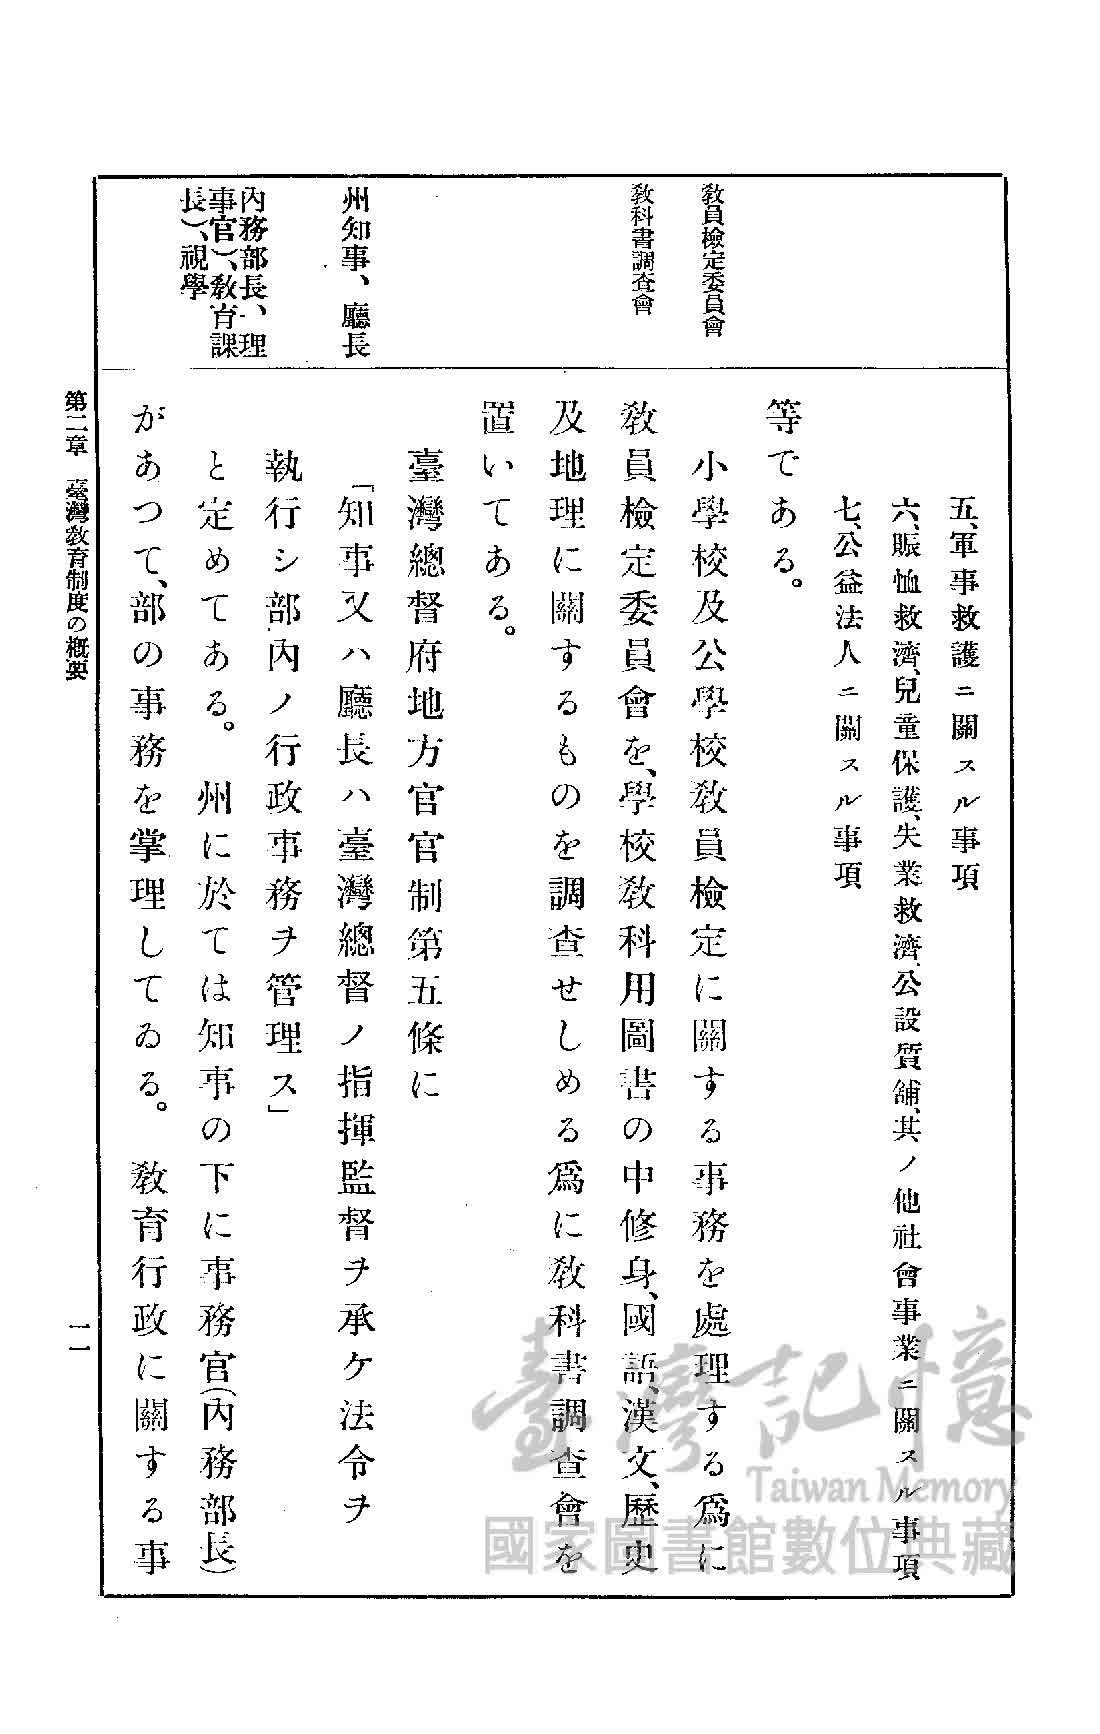 五、軍事救護ニ關スル事項
六、賑恤救濟、兒童保護、失業救濟、公設質舗、其ノ他社會事業ニ關スル事項
七、公益法人ニ關スル事項
等である。
教員檢定委員會
小學校及公學校教員檢定に關する事務を處理する爲に
教科書調査會
教員檢定委員會を、學校教科用圖書の中修身、國語、漢文、歷史
及地理に關するものを調査せしめる爲に教科書調査會を
置いてある。
臺灣總督府地方官官制第五條に
州知事、廳長
「知事又ハ廳長ハ臺灣總督ノ指揮監督ヲ承ケ法令ヲ
執行シ部內ノ行政事務ヲ管理ス」
內務部長、理
事官)、教育課
長)、視學
と定めてある。州に於ては知事の下に事務官(內務部長)
があつて、部の事務を掌理してゐる。教育行政に關する事
第二章 臺灣教育制度の概要
一一
臺灣記憶
Taiwan Memory
國家圖書館數位典藏